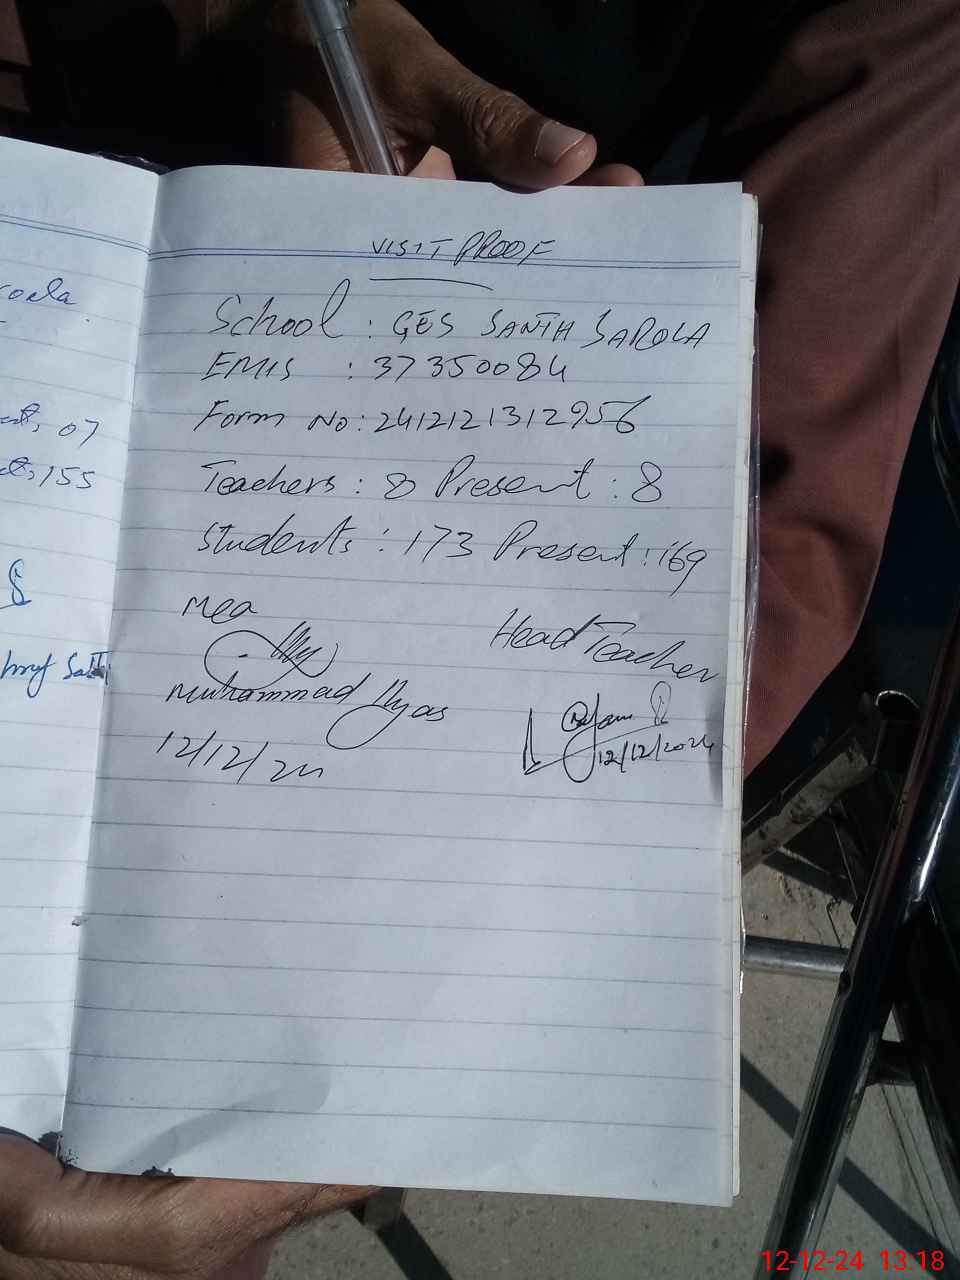 VISIT PROOF
School : GES SANTH SAROLA
EMIS : 37350084
Form No: 2412121312956
Teachers : 8 Present : 8
Students : 173 Present : 169
Mea
Head Teacher
Muhammad Ilyas
12/12/24
12/12/2024
07
155
12-12-24 13:18